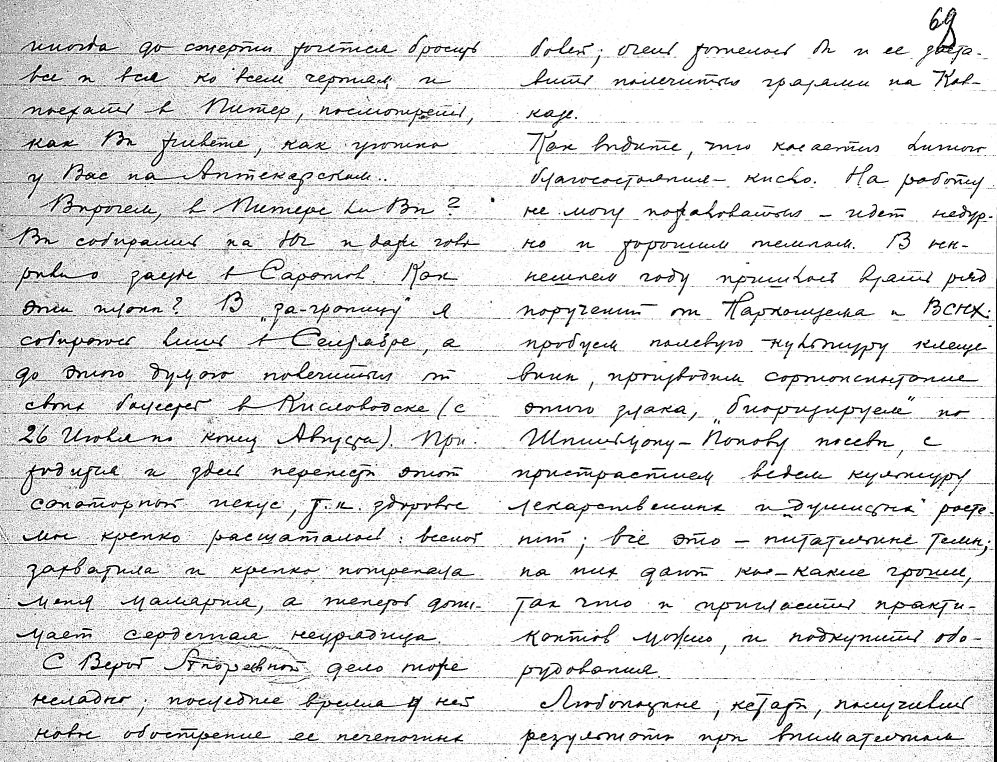 69
иногда до смерти хочется бросить
все и вся ко всем чертям и
поехать в Питер, посмотреть,
как Вы живете, как уютно
у Вас на Аптекарском..
Впрочем, в Питере ли Вы?
Вы собирались на Юг и даже гово-
рили о заезде в Саратов. Как
эти планы? В „за-границу" я
собираюсь лишь в Сентябре, а
до этого думаю полечиться от
своих болезней в Кисловодске (с
26 Июля по конец Августа). При-
ходится и здесь перенести этот
санаторный искус, т.к. здоровье
мое крепко расшаталось: весной
захватила и крепко потрепала
меня малярия, а теперь дони-
мает сердечная неурядица.
С Верой дело тоже
неладно; последнее время у ней
новое обострение ее печеночных
болей; очень хотелось бы и ее заста-
вить полечиться грязями на Кав-
казе.
Как видите, что касается личного
благосостояния – кисло. На работу
не могу пожаловаться – идет недур-
но и хорошим темпом. В ны-
нешнем году пришлось взять ряд
поручений от Наркомзема и ВСНХ:
пробуем полевую культуру клеще-
вины, производим сортоиспытание
этого злака, по
посевы, с
пристрастием ведем культуру
лекарственных и „душистых" расте-
ний; все это – питательные темы;
на них дают кое-какие гроши,
так что и пригласить практи-
кантов можно, и подкупить обо-
рудования.
Любопытные, кстати, получились
результаты при внимательном